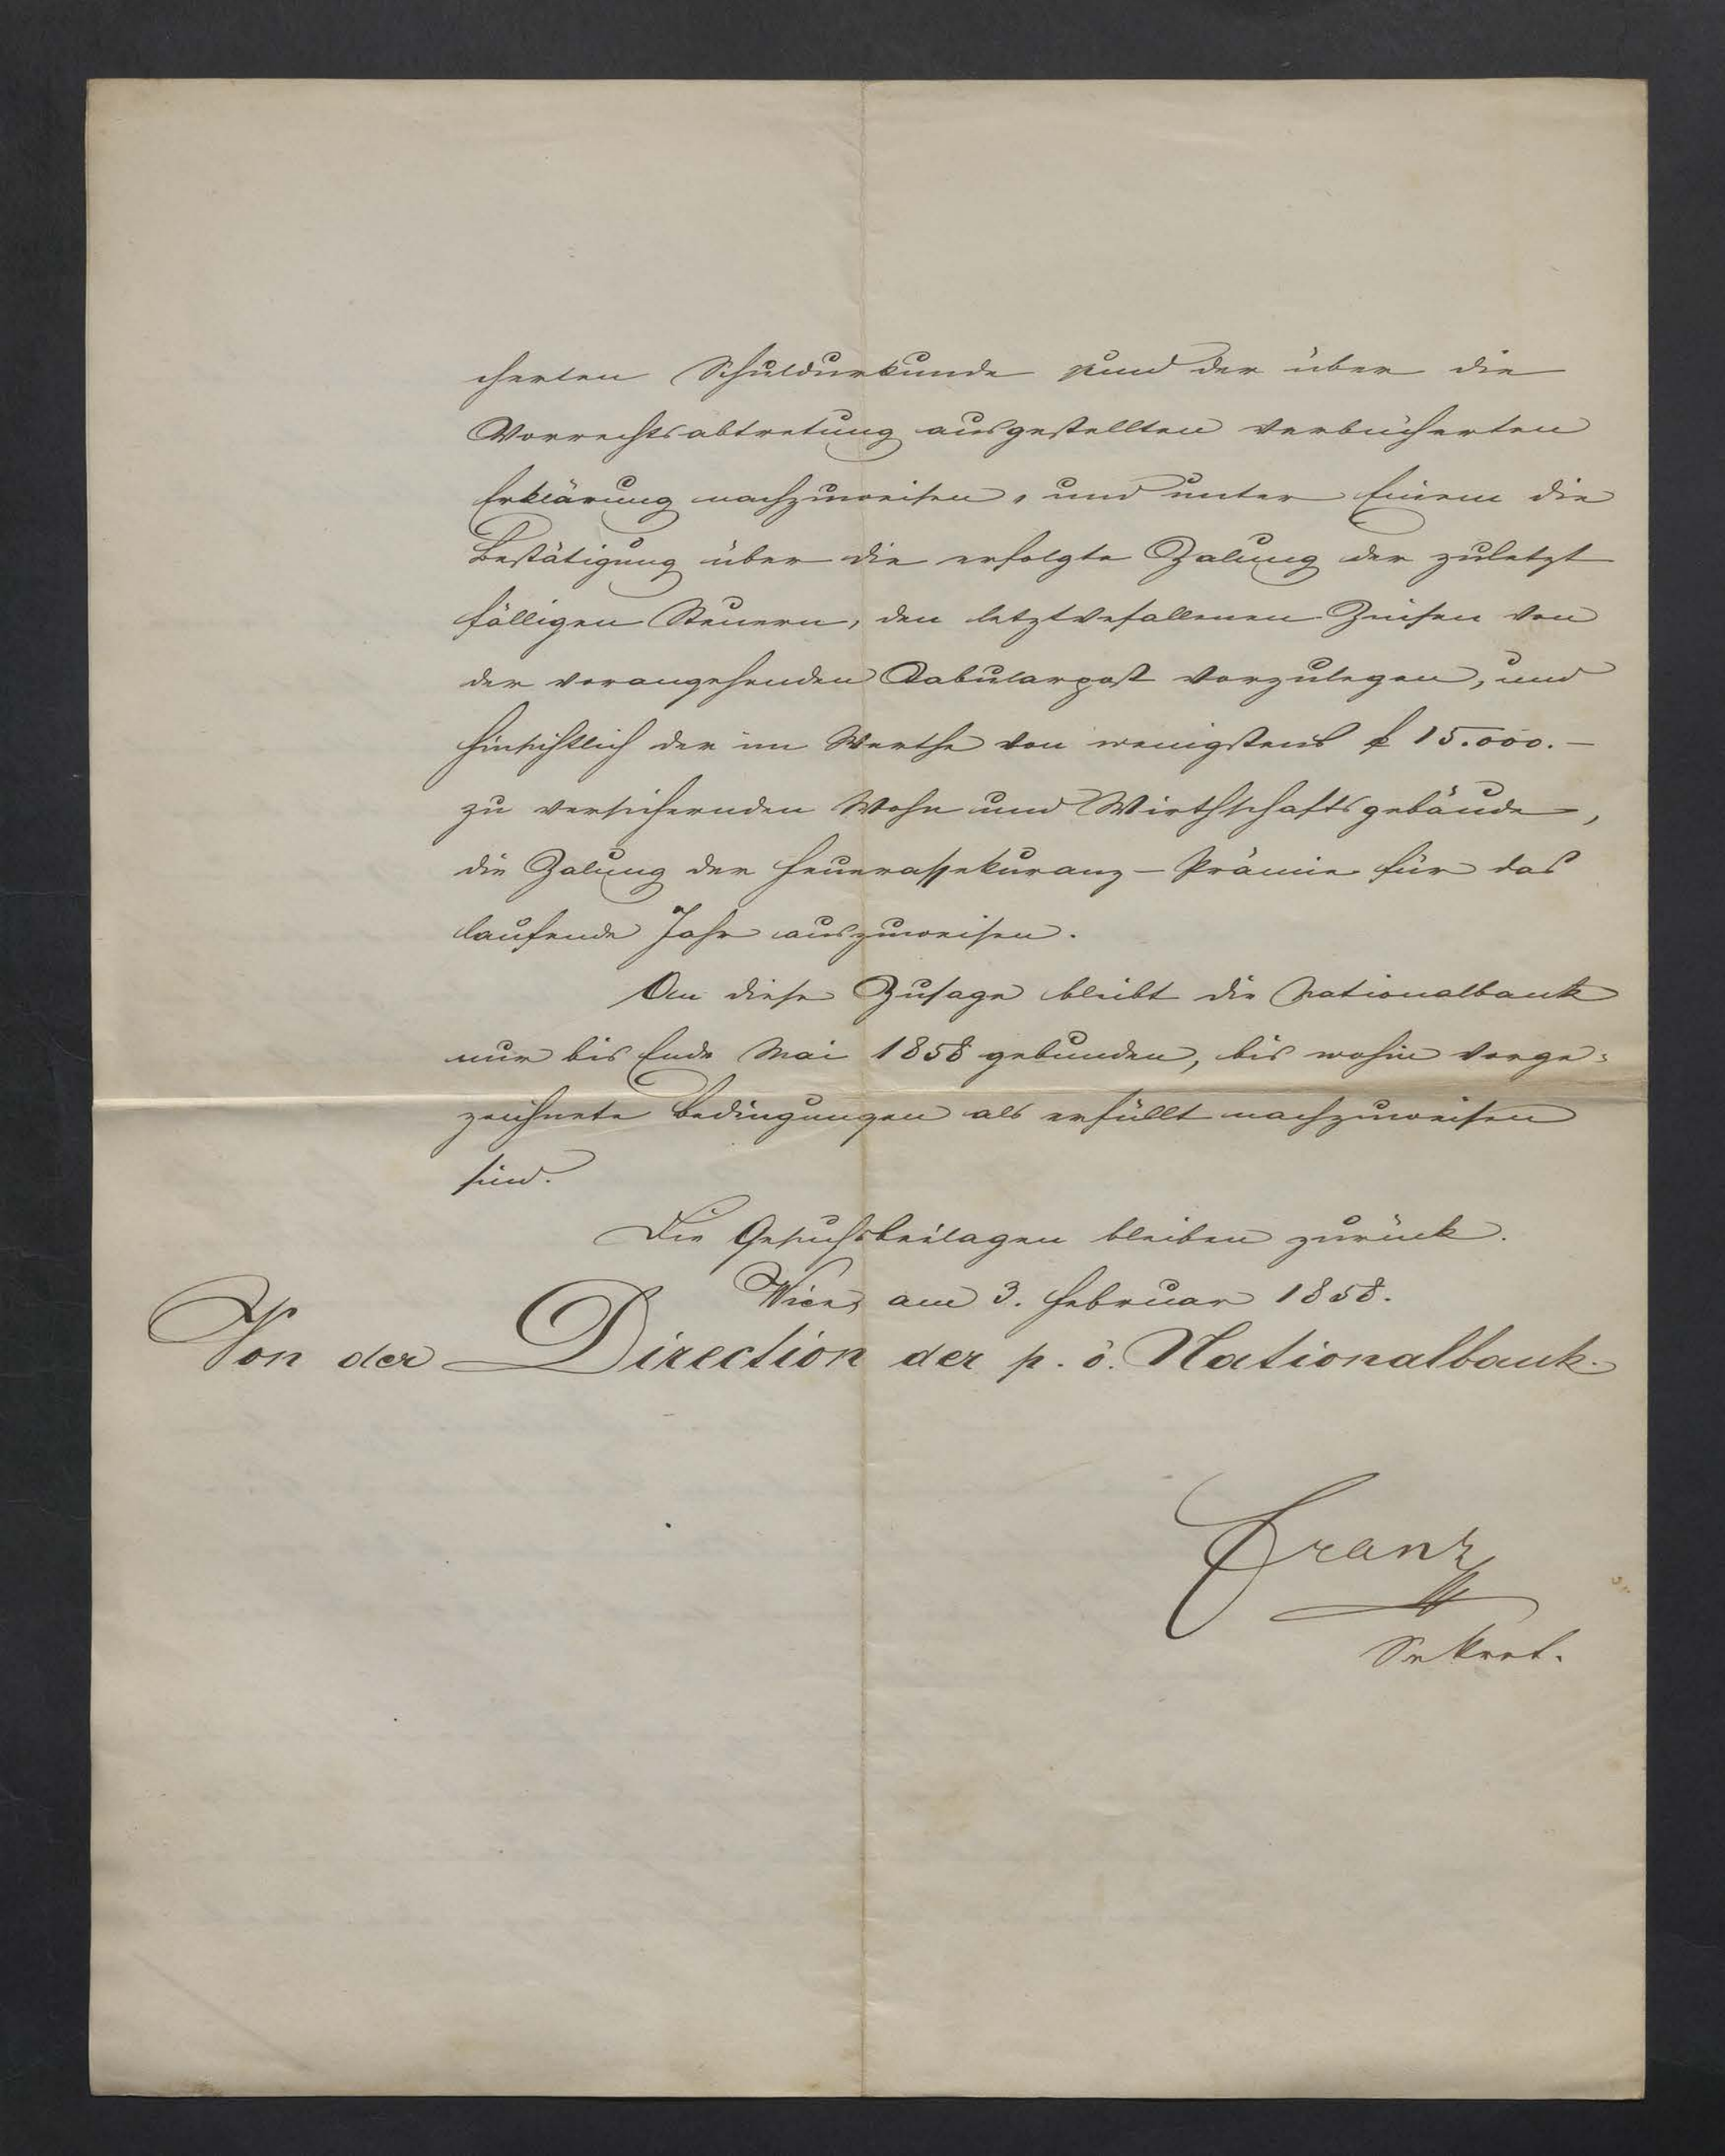 cherten Schuldurkunde und der über die
Vorrechtsabtretung ausgestellten verbücherten
Erklärung nachzuweisen, und unter Einem die
Bestätigung über die erfolgte Zalung der zuletzt
fälligen Steuern, den letztverfallenen Zinsen von
der vorangehenden Tabularpost vorzulegen, und
hinsichtlich der im Werthe von wenigstens f 15.000.–
zu versichernden Wohn und Wirthschaftsgebäude,
die Zalung der Feuerassekuranz-Prämie für das
laufende Jahr auszuweisen.
An diese Zusage bleibt die Nationalbank
nur bis Ende Mai 1858 gebunden, bis wohin vorge=
zeichnete Bedingungen als erfüllt nachzuweisen
sind.
Die Gesuchsbeilagen bleiben zurück.
Wien, am 3. Februar 1858.
Von der Direction der p. ö. Nationalbank.
Franz
Sekret.